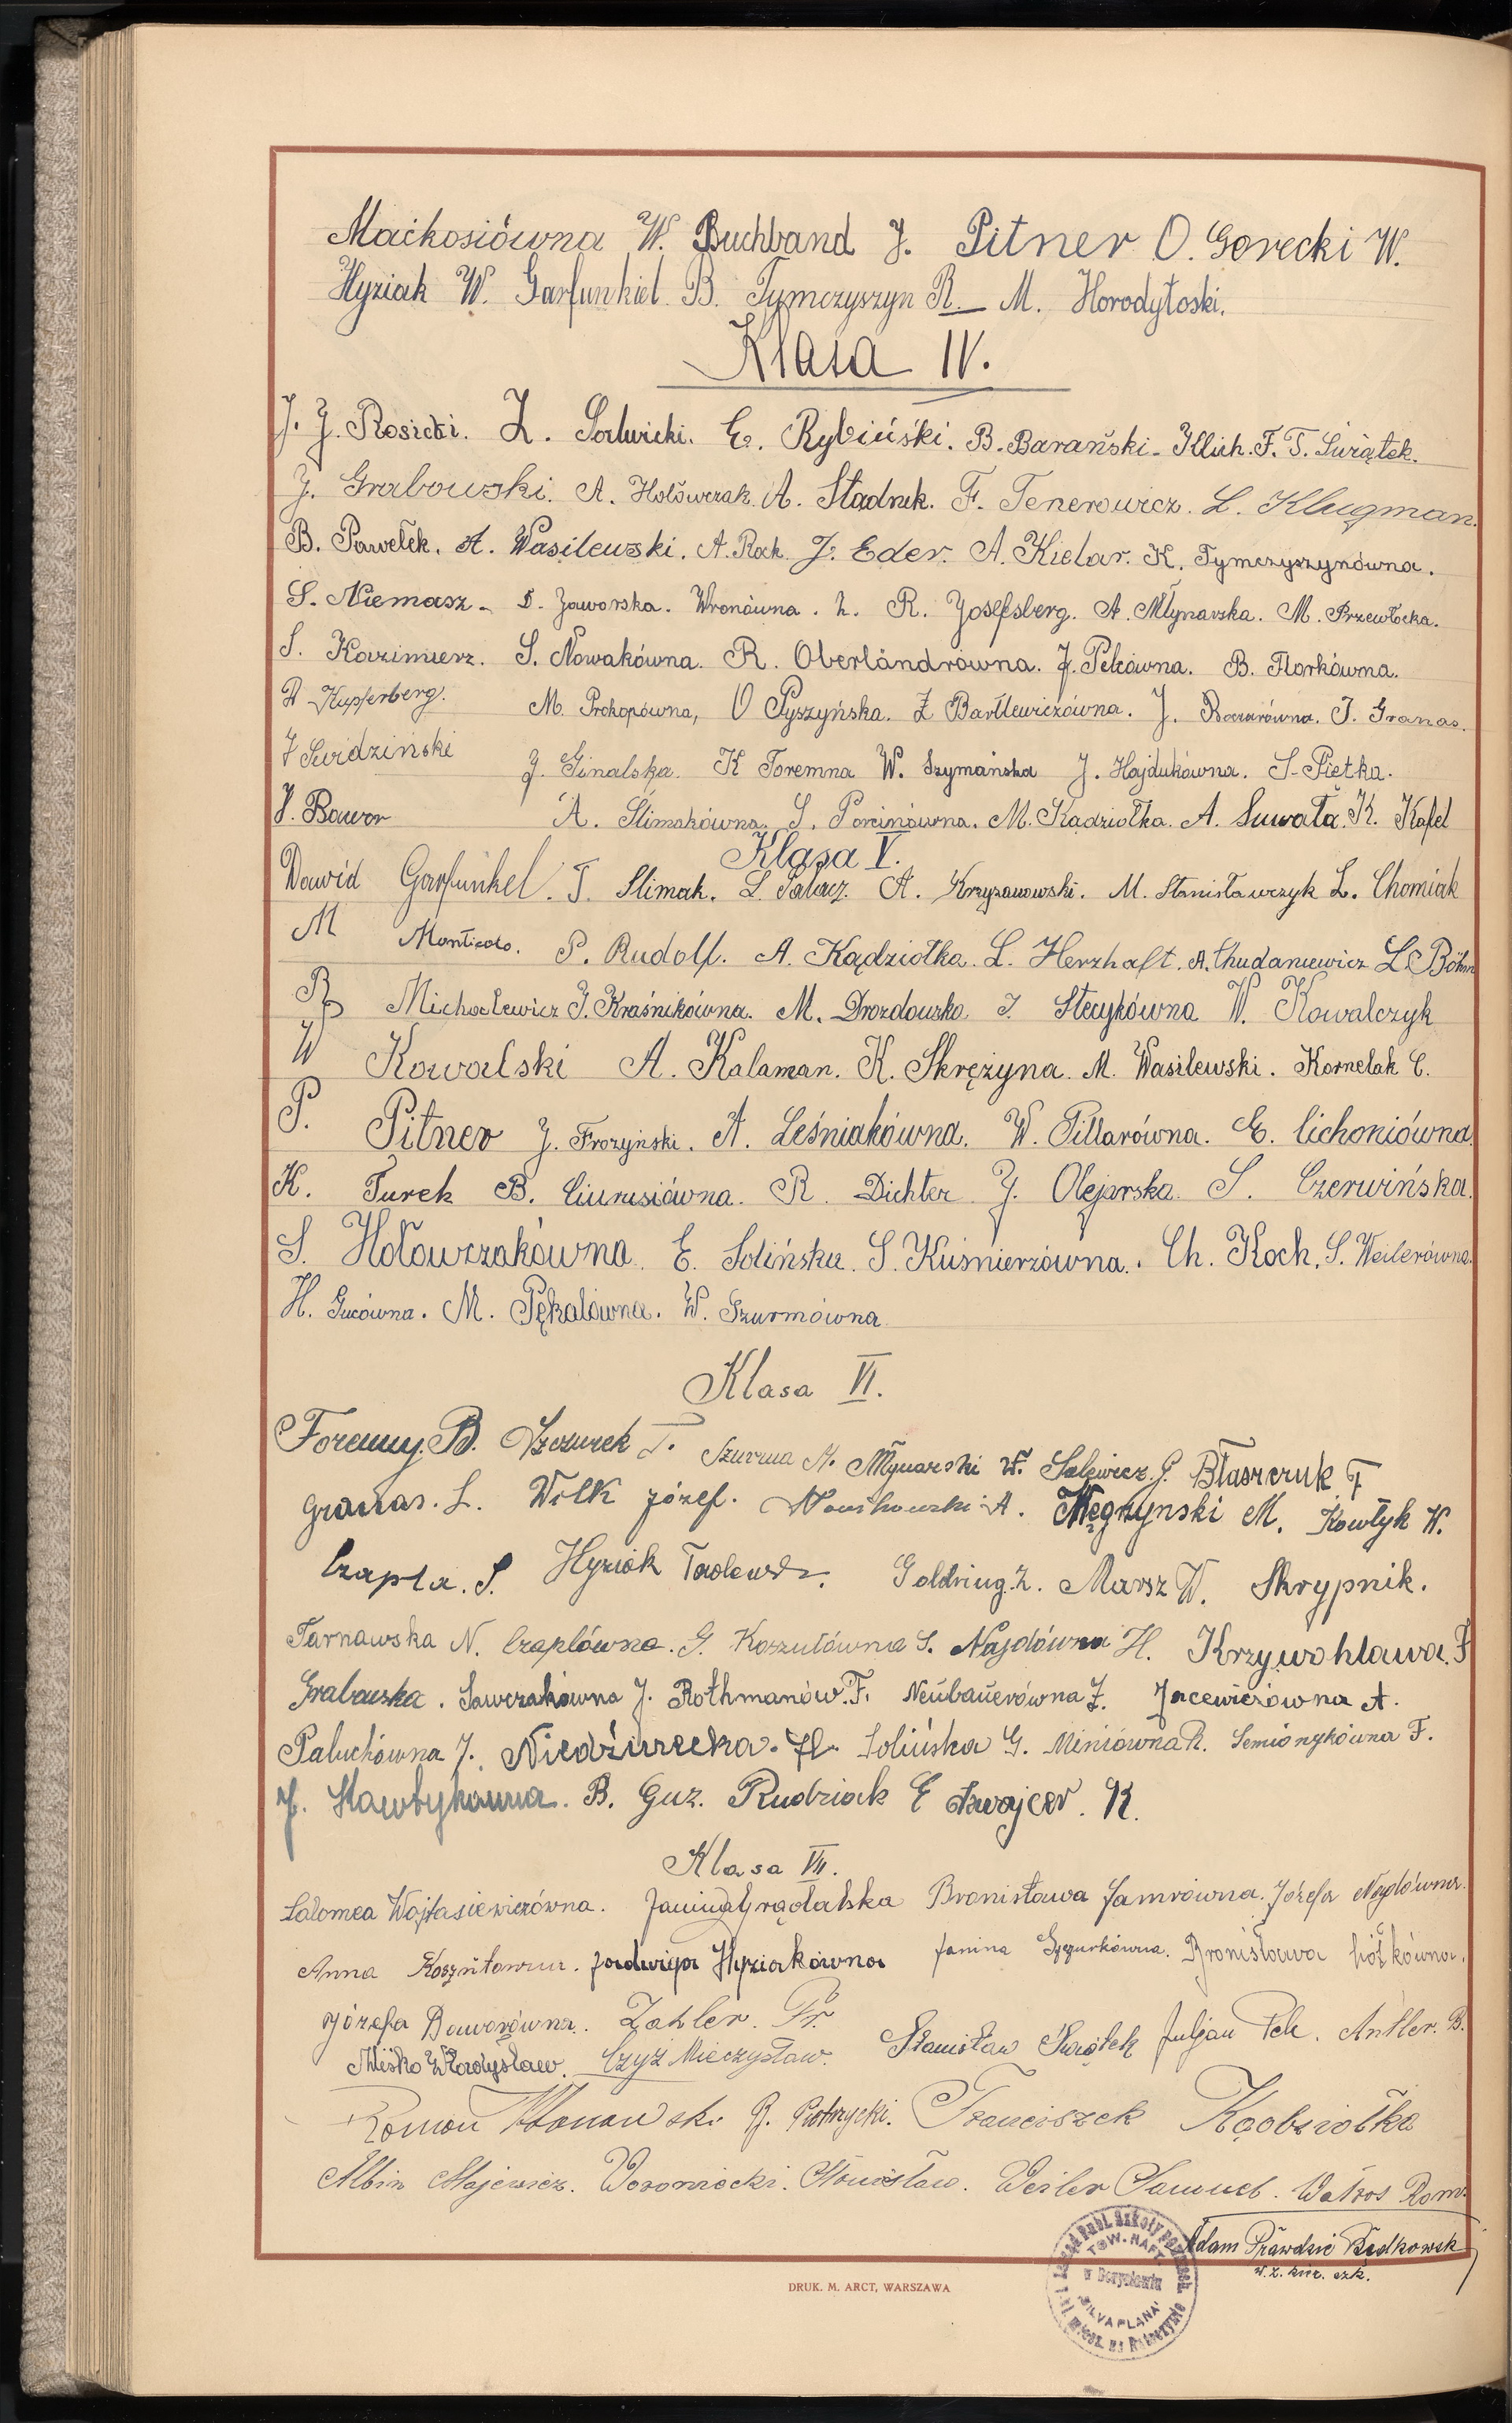 Maćkosiówna W. Buchband J. Pitner O. Gorecki W.
Hyziak W. Garfunkiel B. Tymczyszyn R. M. Horodyłoski.
Klasa IV.
J. J. Rosicki. Z. E. Rybiński. B. Barański. Illich. F. T. Świątek.
J. Grabowski. A. Hołówczak. A. Stadnik. F. Tenerowicz. L. Klugman.
B. Pawełek. A. Wasilewski. A. Rock. J. Eder. A. Kielar. K. Tymczyszynówna.
S. Niemasz. D. Jaworska. Wronówna. Z. R. Josefsberg. A. Młynarska. M. Przewłocka.
S. Kazimierz. S. Nowakówna. R. Oberländrówna. J. Pelcówna. B. Florkówna.
Kupferberg. M. Prokopówna, O Pyszyńska. Z Bartlewiczówna. J. J. Granas.
J Świdziński J. Ginalska. K Foremna W. Szymańska J. Hajdukówna. S. Piętka.
J. Bawor A. Ślimakówna. S. Porcinówna. M. Kądziołka. A. Suwała. K. Kafel
Klasa V.
Dawid Garfunkel. T. Slimak. L. Pałacz. A. Krzyżanowski. M. Stanisławczyk L. Chomiak
M Monticolo. P. Rudolf. A. Kądziołka. L. Herzhaft. A. Chudaniewicz L. Böhm
R Michalewicz J. Kraśnikówna. M. Drozdowska J. Stecykówna W. Kowalczyk
W Kowalski A. Kalaman. K. Skrężyna. M. Wasilewski. Kornelak E.
P. Pitner J. Frozyński. A. Leśniakówna. W. Pillarówna. E. Cichoniówna.
K. Turek B. Ciurusiówna. R. Dichter J. Olejarska. S. Czerwińska.
S. Hołowczakówna. E. Solińska. S. Kuśnierzówna. Ch. Koch. S. Weilerówna.
H. Gucówna. M. Pękalówna. W. Szurmówna
Klasa VI.
Foremny. B. Szczurek T. Szurma A. Młynarski W. Salewicz. G. Błaszczuk F
Granas. L. Wilk Józef. Nowikowski A. Węgrzynski M. Kowtyk W.
Czapla. S. Hyziak Tadeusz. Goldring. Z. Marsz W. Skrypnik.
Tarnawska N. Czaplówna. G. Koszutówna S. Najdówna H. Krzywohlawa. F
Grabowska. Sawczakówna J. Rothmanów. F. Neubauerówna F. Jacewiczówna A.
Paluchówna J. Niedźwiecka. H. Solińska G. Miniówna R. Semionykówna F.
J. Hawtykówna. B. Guz. Rudziak E Szwajcer. R.
Klasa VII.
Salomea Wojtasiewiczówna. Janina Grądalska Bronisława Jamrówna. Józefa Najdówna.
Anna Koszutówna. Jadwiga Hyziakówna Janina Szczurkówna. Bronisława
Józefa Baworówna. Zahler. Fr. Stanisław Świątek Juljan Pelc. Antler. B.
Miśko Władysław. Czyż Mieczysław.
Roman R. Piotrzycki. Franciszek Kądziołka
Albin Majewicz. Woroniecki. Stanisław. Weiler Samuel. Watros Rom.
Adam Prawdzic Bedkowsk
w. z. kier. szk.
TOW. NAFT.
w Borysławiu
"SILVA PLANA"
DRUK. M. ARCT, WARSZAWA